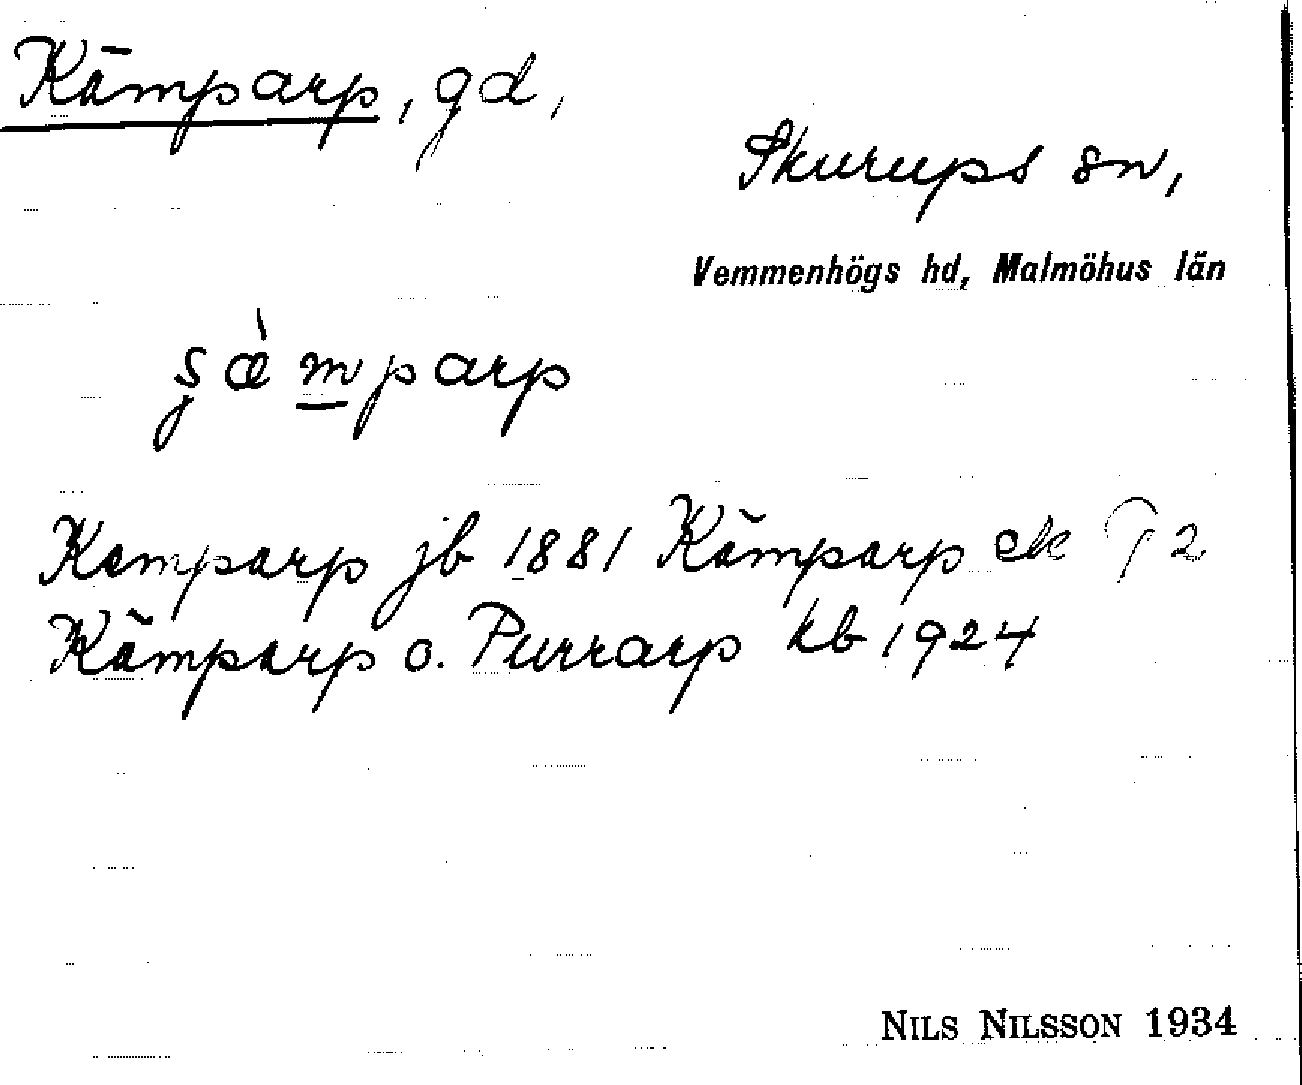 Kämparp, gd,
Skurups sn,
Vemmenhögs hd, Malmöhus län
ʂæ̀m̲parp
Kamparp jb 1881 Kämparp ek T 2
Kämparp o. Purrarp kb 1924
NILS NILSSON 1934